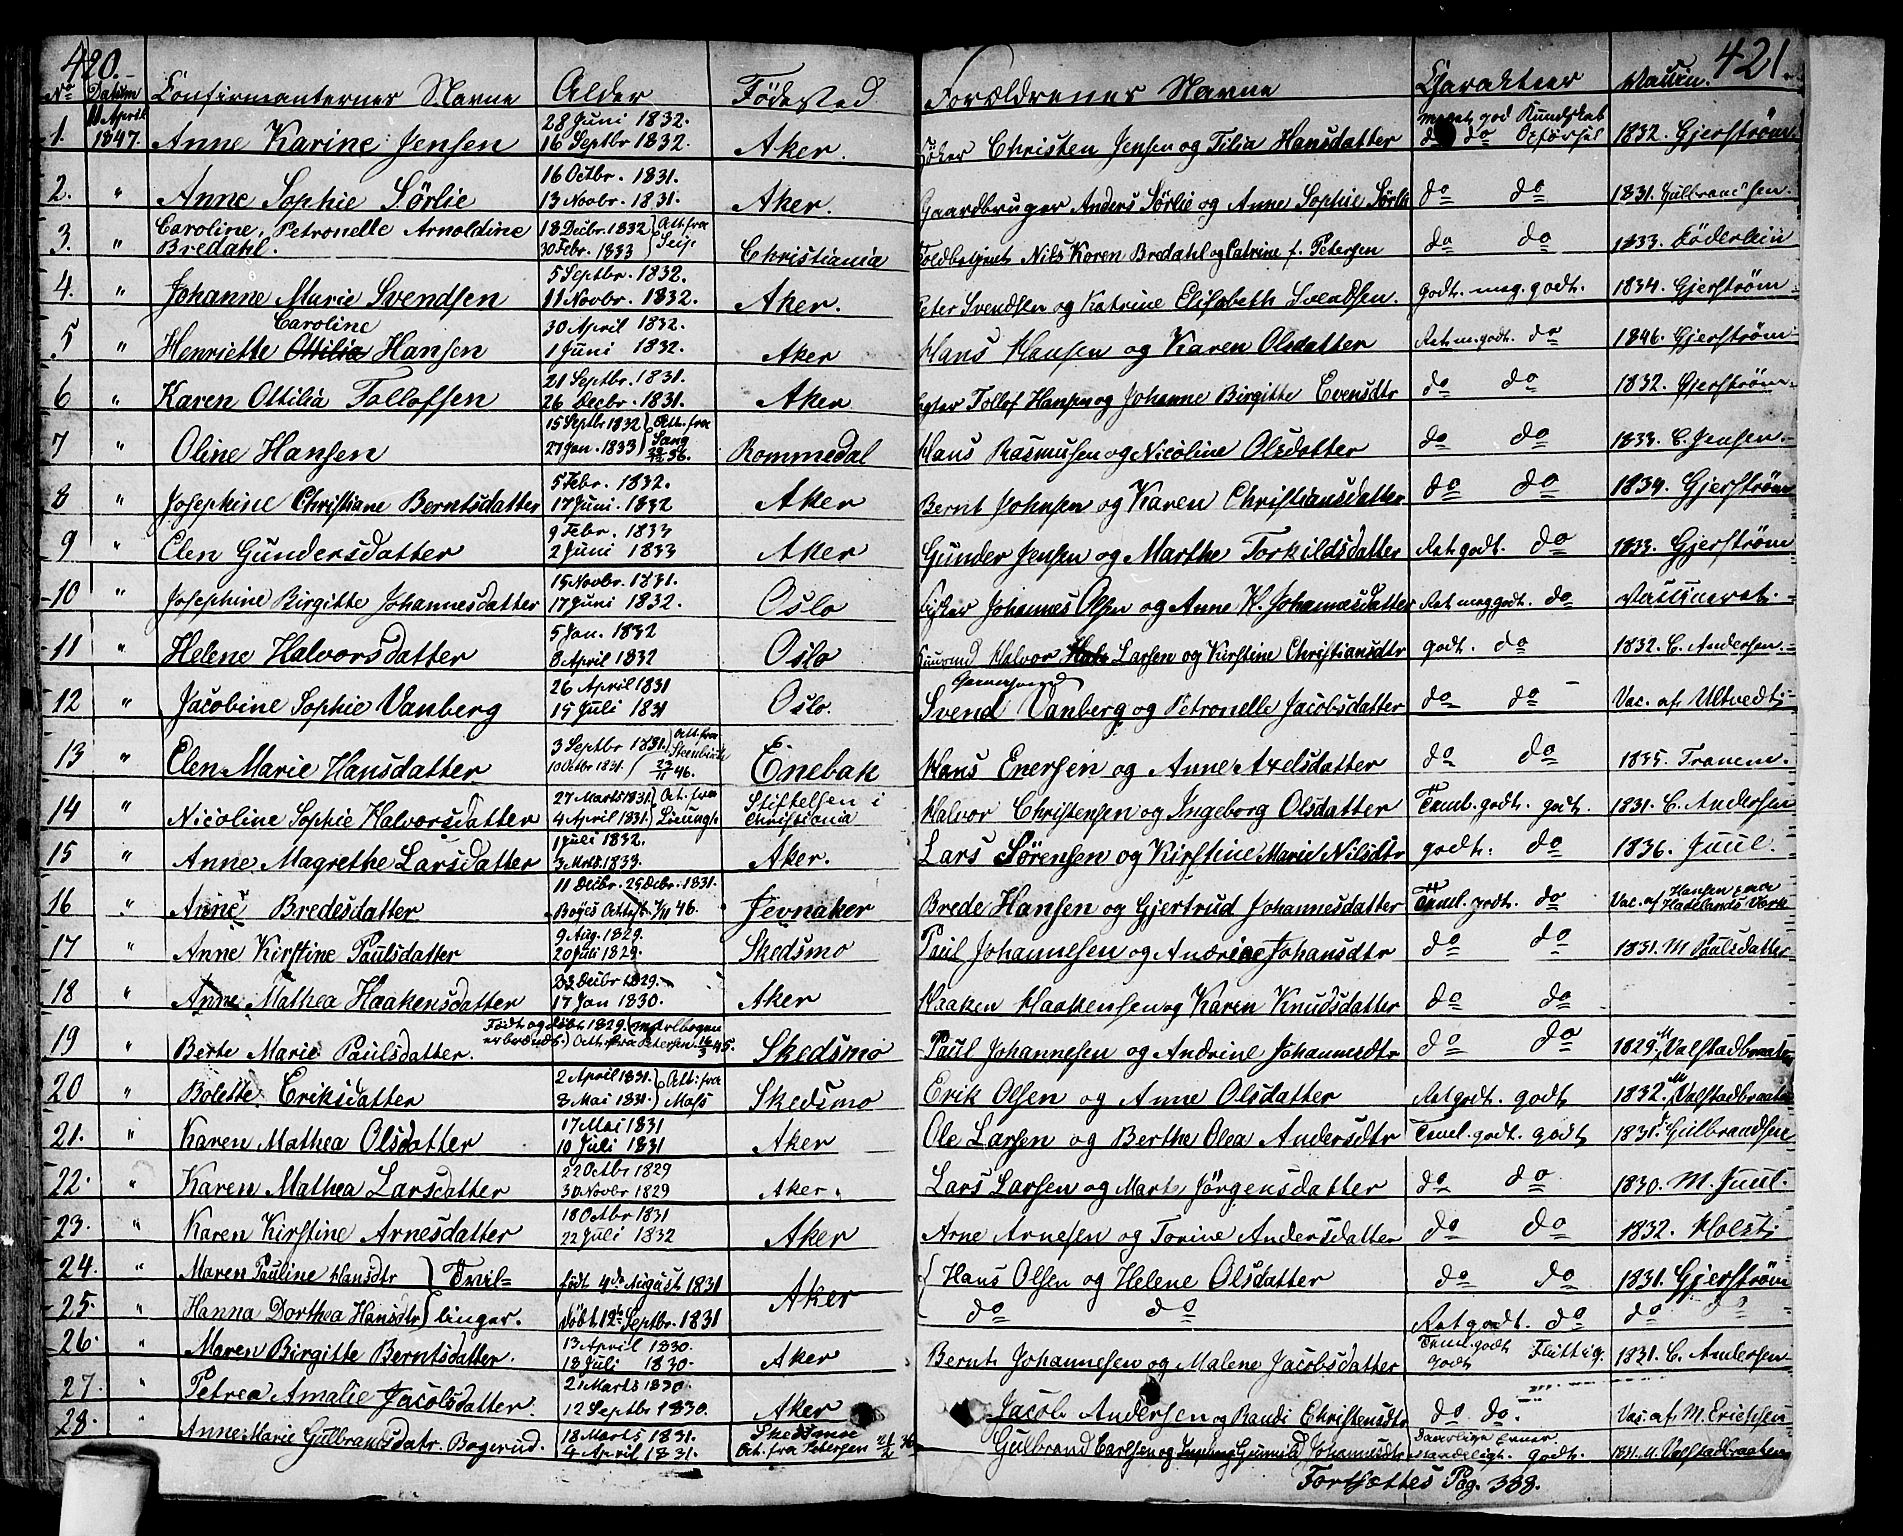 420.
421.
No Datum Confirmanternes Navne Alder Fødested Forældrenes Navne Charakteer Vaccin.
11 April 28 Juni 1832. meget god Kundskab
1. 1847. Anne Karine Jensen 16 Septbr 1832. Aker. Christen Jensen og Tilia Hansdatter do do Opførsel 1832. Gjerstrøm
16 Octbr. 1831.
2. " Anne Sophie Sørlie 13 Novbr. 1831. Aker. Gaardbruger Anders Sørlie og Anne Sophie Sørlie do do 1831. Gulbrandsen.
Caroline Petronelle Arnoldine 18 Decbr. 1832 Att. fra
3. " Bredahl. 30 Febr. 1833 Christiania Nils Koren Bredahl og Catrine f. Petersen do do 1833.
5 Septbr. 1832.
4. " Johanne Marie Svendsen 11 Novbr. 1832. Aker. Peter Svendsen og Katrine Elisabeth Svendsen. godt. meg. godt. 1834. Gjerstrøm
Caroline 30 April 1832.
5 " Henriette Ottilia Hansen 1 Juni 1832. Aker Hans Hansen og Karen Olsdatter Ret m. godt. do 1846. Gjerstrøm
21 Septbr. 1831.
6 " Karen Ottilia Tollofsen 26 Decbr. 1831. Aker Tollof Hansen og Johanne Birgitte Evensdtr do do 1832. Gjerstrøm
15 Septbr 1832 Att. fra
7 " Oline Hansen 27 Jan. 1833 Sang Rommedal Hans Rasmusen og Nicoline Olsdatter do do 1833. C. Jensen.
5 Febr. 1832.
8 " Josephine Christiane Berntsdatter 17 Juni. 1832 Aker Bernt Johnsen og Karen Christiansdatter do do 1834. Gjerstrøm
9 Febr. 1833
9 " Elen Gundersdatter 2 Juni 1833 Aker Gunder Jensen og Marthe Torkildsdatter Ret godt. do 1833. Gjerstrøm
15 Novbr. 1831.
10 " Josephine Birgitte Johannesdatter 17 Juni 1832. Oslo Johannes Olsen og Anne K. Johannesdatter Ret meg godt. do Vaccineret.
5 Jan. 1832
11 " Helene Halvorsdatter 8 April 1832 Oslo Halvor Larsen og Kirstine Christiansdtr godt. do 1832. C. Andersen.
26 April 1831
12 " Jacobine Sophie Vanberg 15 Juli 1831 Oslo. Svend Vanberg og Petronelle Jacobsdatter do do Vac. af Ultvedt
3 Septbr 1831. Att. fra
13 " Elen Marie Hansdatter 10 Octbr 1831. 23/11 46. Enebak Hans Enersen og Anne Axelsdatter do do 1835. Tranem.
27 Marts 1831 Att. fra Stiftelsen i
14 " Nicoline Sophie Halvorsdatter 4 April 1831. Christiania Halvor Christensen og Ingeborg Olsdatter Teml. godt. godt. 1831. C. Andersen
1 Juli 1832.
15 " Anne Magrethe Larsdatter 3 Mrts. 1833. Aker. Lars Sørensen og Kirstine Marie Nilsdtr godt. do 1836. Juul.
11 Decbr. 25 Decbr. 1831. Hansen paa
16 " Anne Bredesdatter Boyes Attest. 1/11 46. Jevnaker Brede Hansen og Gjertrud Johannesdatter Teml. godt. do Vac. af Hadelands Værk
9 Aug. 1829.
17 " Anne Kirstine Paulsdatter 20 Juli 1829. Skedsmo Paul Johannesen og Andrine Johansdtr do do 1831. M Paulsdatter
22 Decbr 1829.
18 " Anne Mathea Haakensdatter 17 Jan 1830. Aker Haaken Haakensen og Karen Knudsdatter do do
Født og døbt 1829.
19 " Berte Marie Paulsdatter. Att. fra Petersen 16/3 45. Skedsmo Paul Johannesen og Andrine Johannesdtr do do 1829 M. Valstadbraaten
2 April 1831. Att: fra
20 " Bolette Eriksdatter 8 Mai 1831. Moss Skedsmo Erik Olsen og Anne Olsdatter Ret godt. godt 1832. M. Valstadbraaten
17 Mai 1831
21. " Karen Mathea Olsdatter 10 Juli 1831 Aker Ole Larsen og Berthe Olea Andersdtr Teml. godt. godt 1831. Gulbrandsen
22 Octbr 1829
22. " Karen Mathea Larsdatter 30 Novbr 1829 Aker. Lars Larsen og Marte Jørgensdatter do do 1830. M. Juul.
18 Octbr 1831
23. " Karen Kirstine Arnesdatter 22 Juli 1832 Aker Arne Arnesen og Torine Andersdatter do do 1832. Holst
24. " Maren Pauline Hansdtr Tvil- født 4de August 1831 Aker Hans Olsen og Helene Olsdatter do do 1831. Gjerstrøm
25. " Hanna Dorthea Hansdtr linger. døbt 12te Septbr. 1831 do do Ret godt. do do do
13 April 1830. Teml. godt
26. " Maren Birgitte Berntsdatter. 18 Juli 1830. Aker Bernt Johannesen og Malene Jacobsdatter godt Flittig. 1831. C. Andersen
21 Marts 1830
27. " Petrea Amalie Jacobsdatter. 12 Septbr 1830. Aker Jacob Andersen og Randi Christensdtr do do. Vac. af M. Erichsen
18 Marts 1831. Skedsmoe
28. " Anne Marie Gulbransdatr. Bogerud. 4 April 1831. Att. fra Petersen Gulbrand Carlsen og Gunnild Johannesdtr maadeligt. godt. 1831. M. Valstadbraaten
Fortsættes Pag. 388.